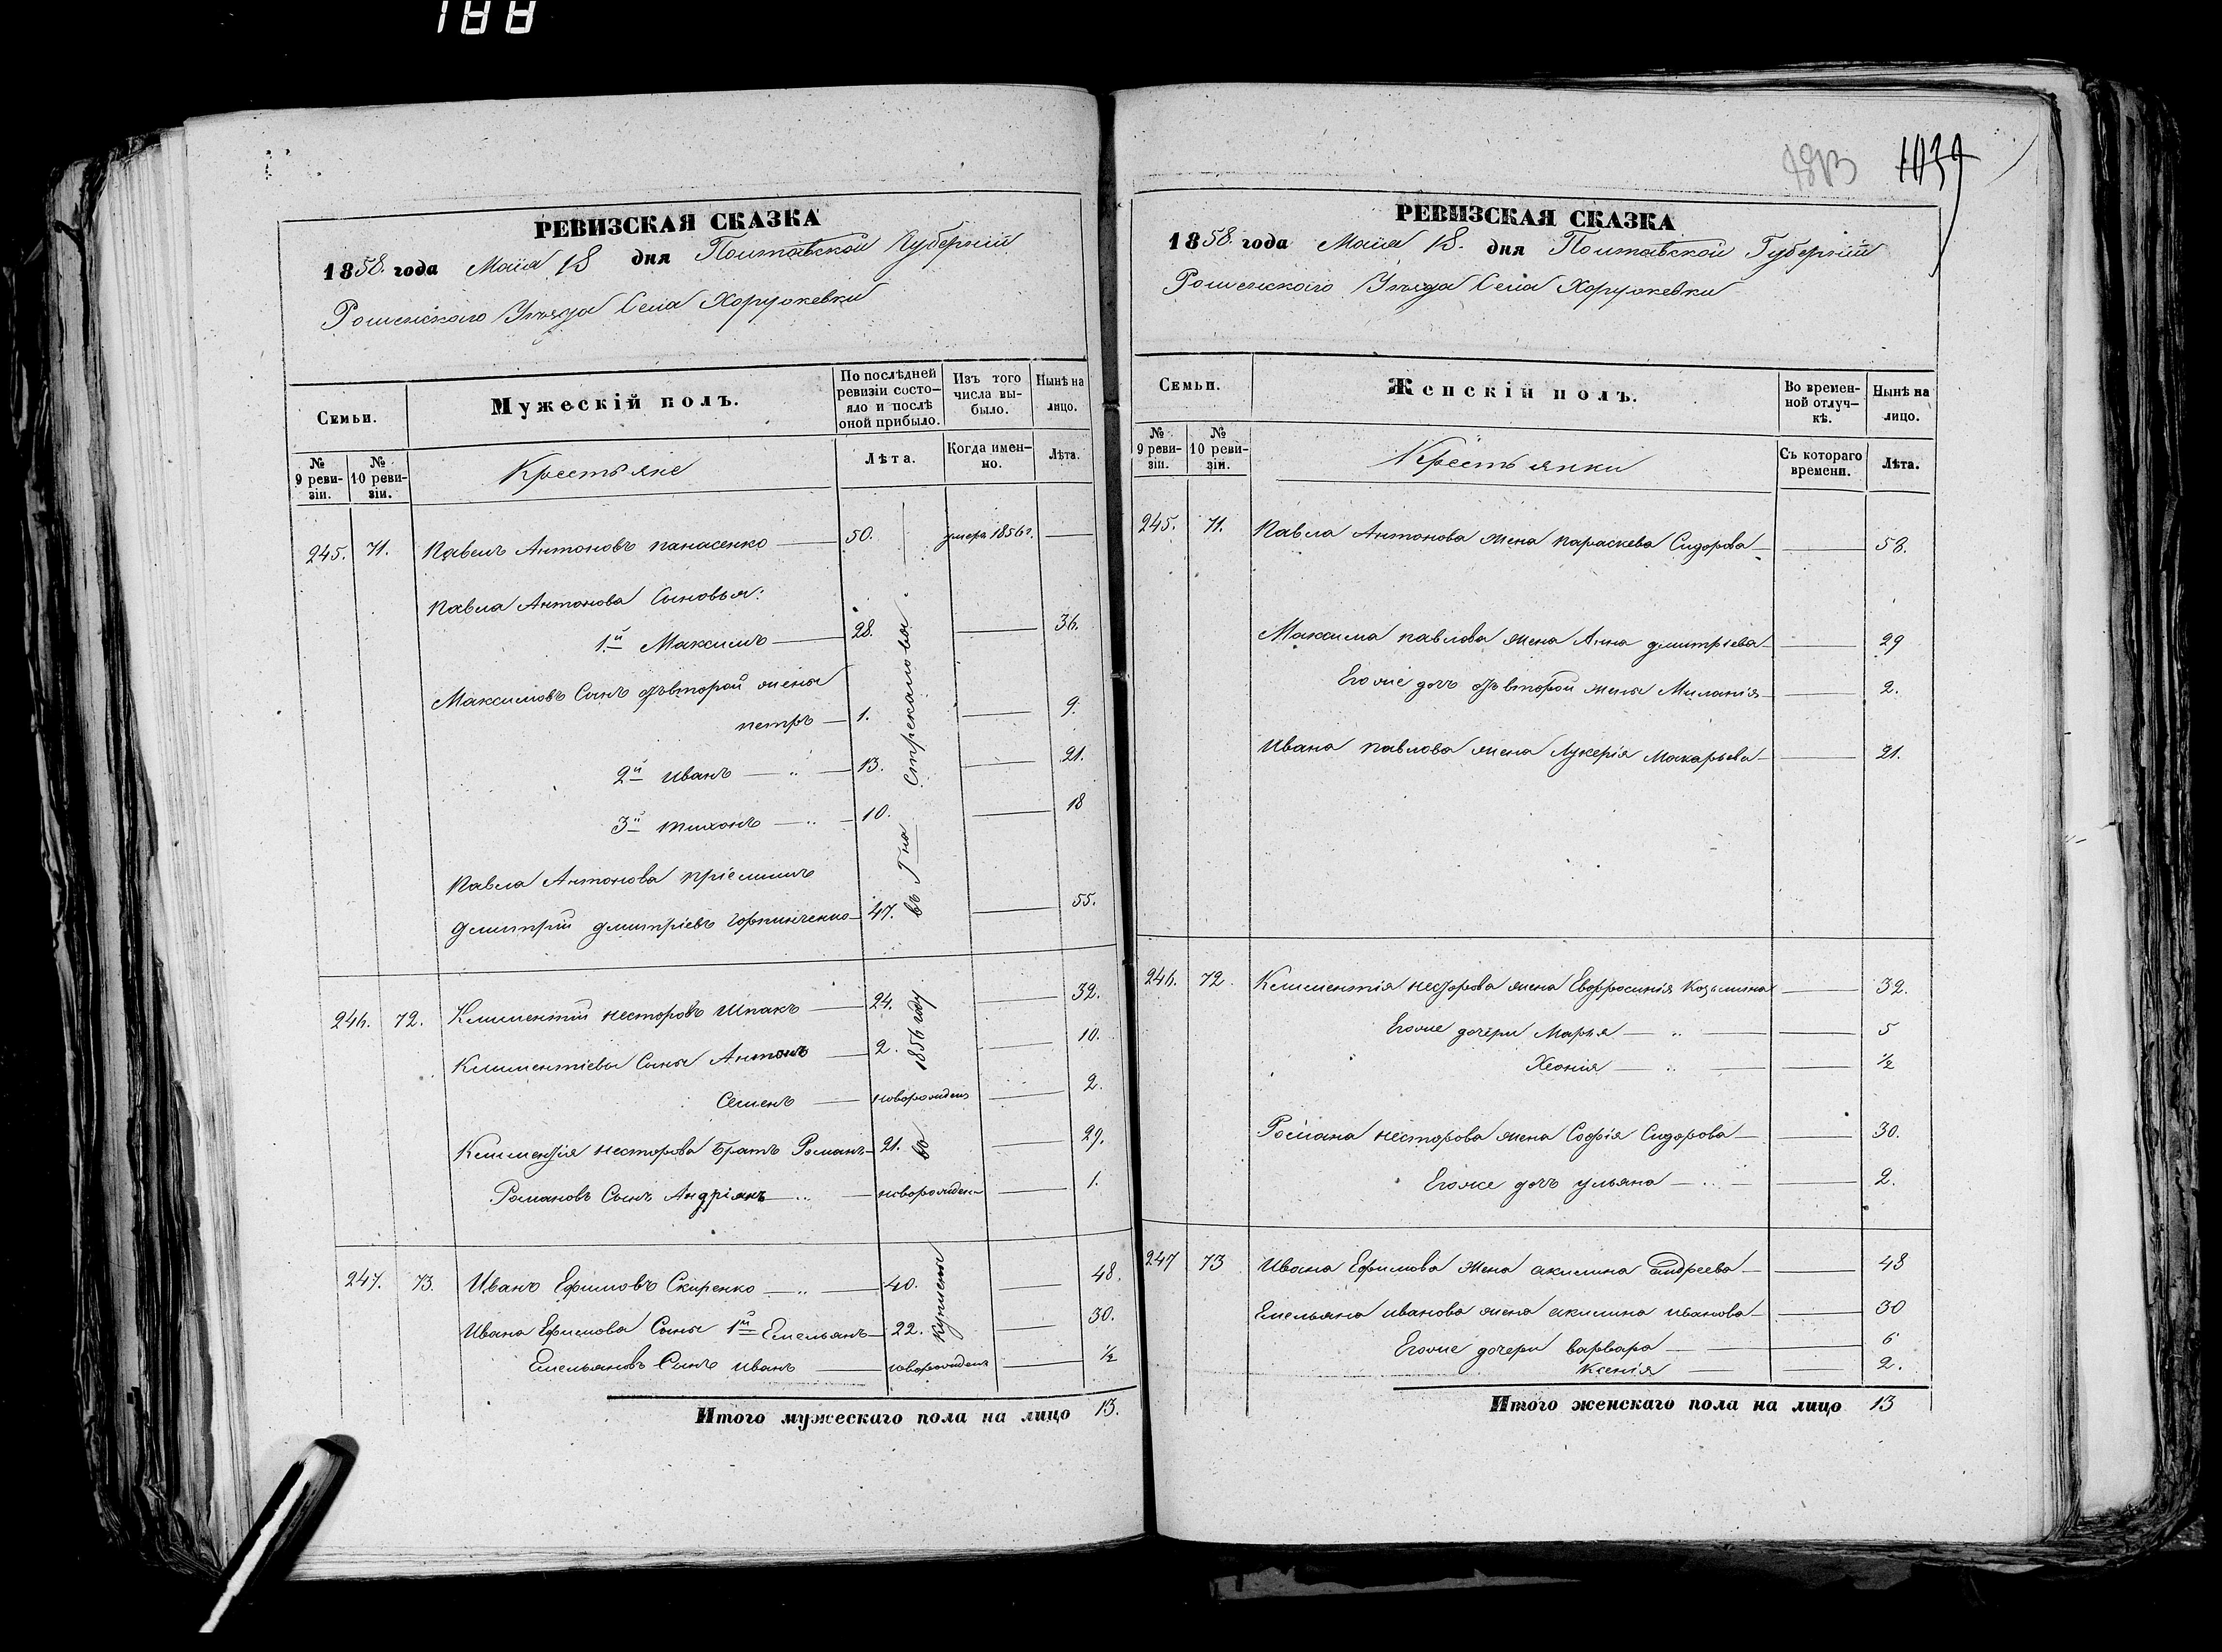 188
РЕВИЗСКАЯ СКАЗКА
1858. года Маiя 18 дня Полтавской Губернiи
Роменскаго Уѣзда Села Хоружевки
Семьи.
Мужескiй полъ.
По послѣдней ревизiи состо-
яло и послѣ оной прибыло.
Изъ того числа вы-
было.
Нынѣ на лицо.
№ 9 реви-
зiи.
№ 10 реви-
зiи.
Крестьяне
Лѣта.
Когда имен-
но.
Лѣта.
245. 71. Павелъ Антоновъ панасенко 50. умеръ 1856г.
Павла Антонова Сыновья:
1й Максимъ 28. 36.
Максимовъ Сынъ отъ второй жены
петръ 1. 9.
2й иванъ — „ — 13. 21.
3й тихонъ — „ — 10. 18
Павла Антонова прiемышъ
дмитрiй дмитрiевъ горпинченко 47. 55.
246. 72. Климентiй несторовъ Шпакъ 24. 32.
Климентiевы Сыны Антонъ 2. 10.
Семенъ новорожденъ 2.
Климентiя несторова братъ Романъ 21. 29.
Романовъ Сынъ Андрiянъ — „ — новорожденъ 1.
247. 73. Иванъ Ефимовъ Скиренко — „ — 40. 48.
Ивана Ефимова Сыны 1й Емельянъ 22. 30.
Емельяновъ Сынъ иванъ новорожденъ 1/2
куплены въ 1856 году въ Гна Стрекаловы
Итого мужескаго пола на лицо 13.
1039
РЕВИЗСКАЯ СКАЗКА
1858. года Маiя 18. дня Полтавской Губернiи
Роменскаго Уѣзда Села Хоружевки
Семьи.
Женскiй полъ.
Во времен-
ной отлуч-
кѣ.
Нынѣ на лицо.
№ 9 реви-
зiи.
№ 10 реви-
зiи.
Крестьянки
Съ котораго времени.
Лѣта.
245. 71. Павла Антонова жена параскева Сидорова 58.
Максима павлова жена Анна дмитрiева 29
Егоже дочь отъ второй жены Миланiя 2.
Ивана павлова жена Лукерiя Макарьева 21.
246. 72. Климентiя несторова жена Евфросинiя Козьмина 32.
Егоже дочери Марья — „ — 5
Хеонiя — „ — 1/2
Романа несторова жена Софiя Сидорова 30.
Егоже дочь ульяна — „ — 2.
247 73 Ивана Ефимова жена акилина андреева 48
Емельяна иванова жена акилина иванова 30
Егоже дочери варвара 6
ксенiя 2.
Итого женскаго пола на лицо 13